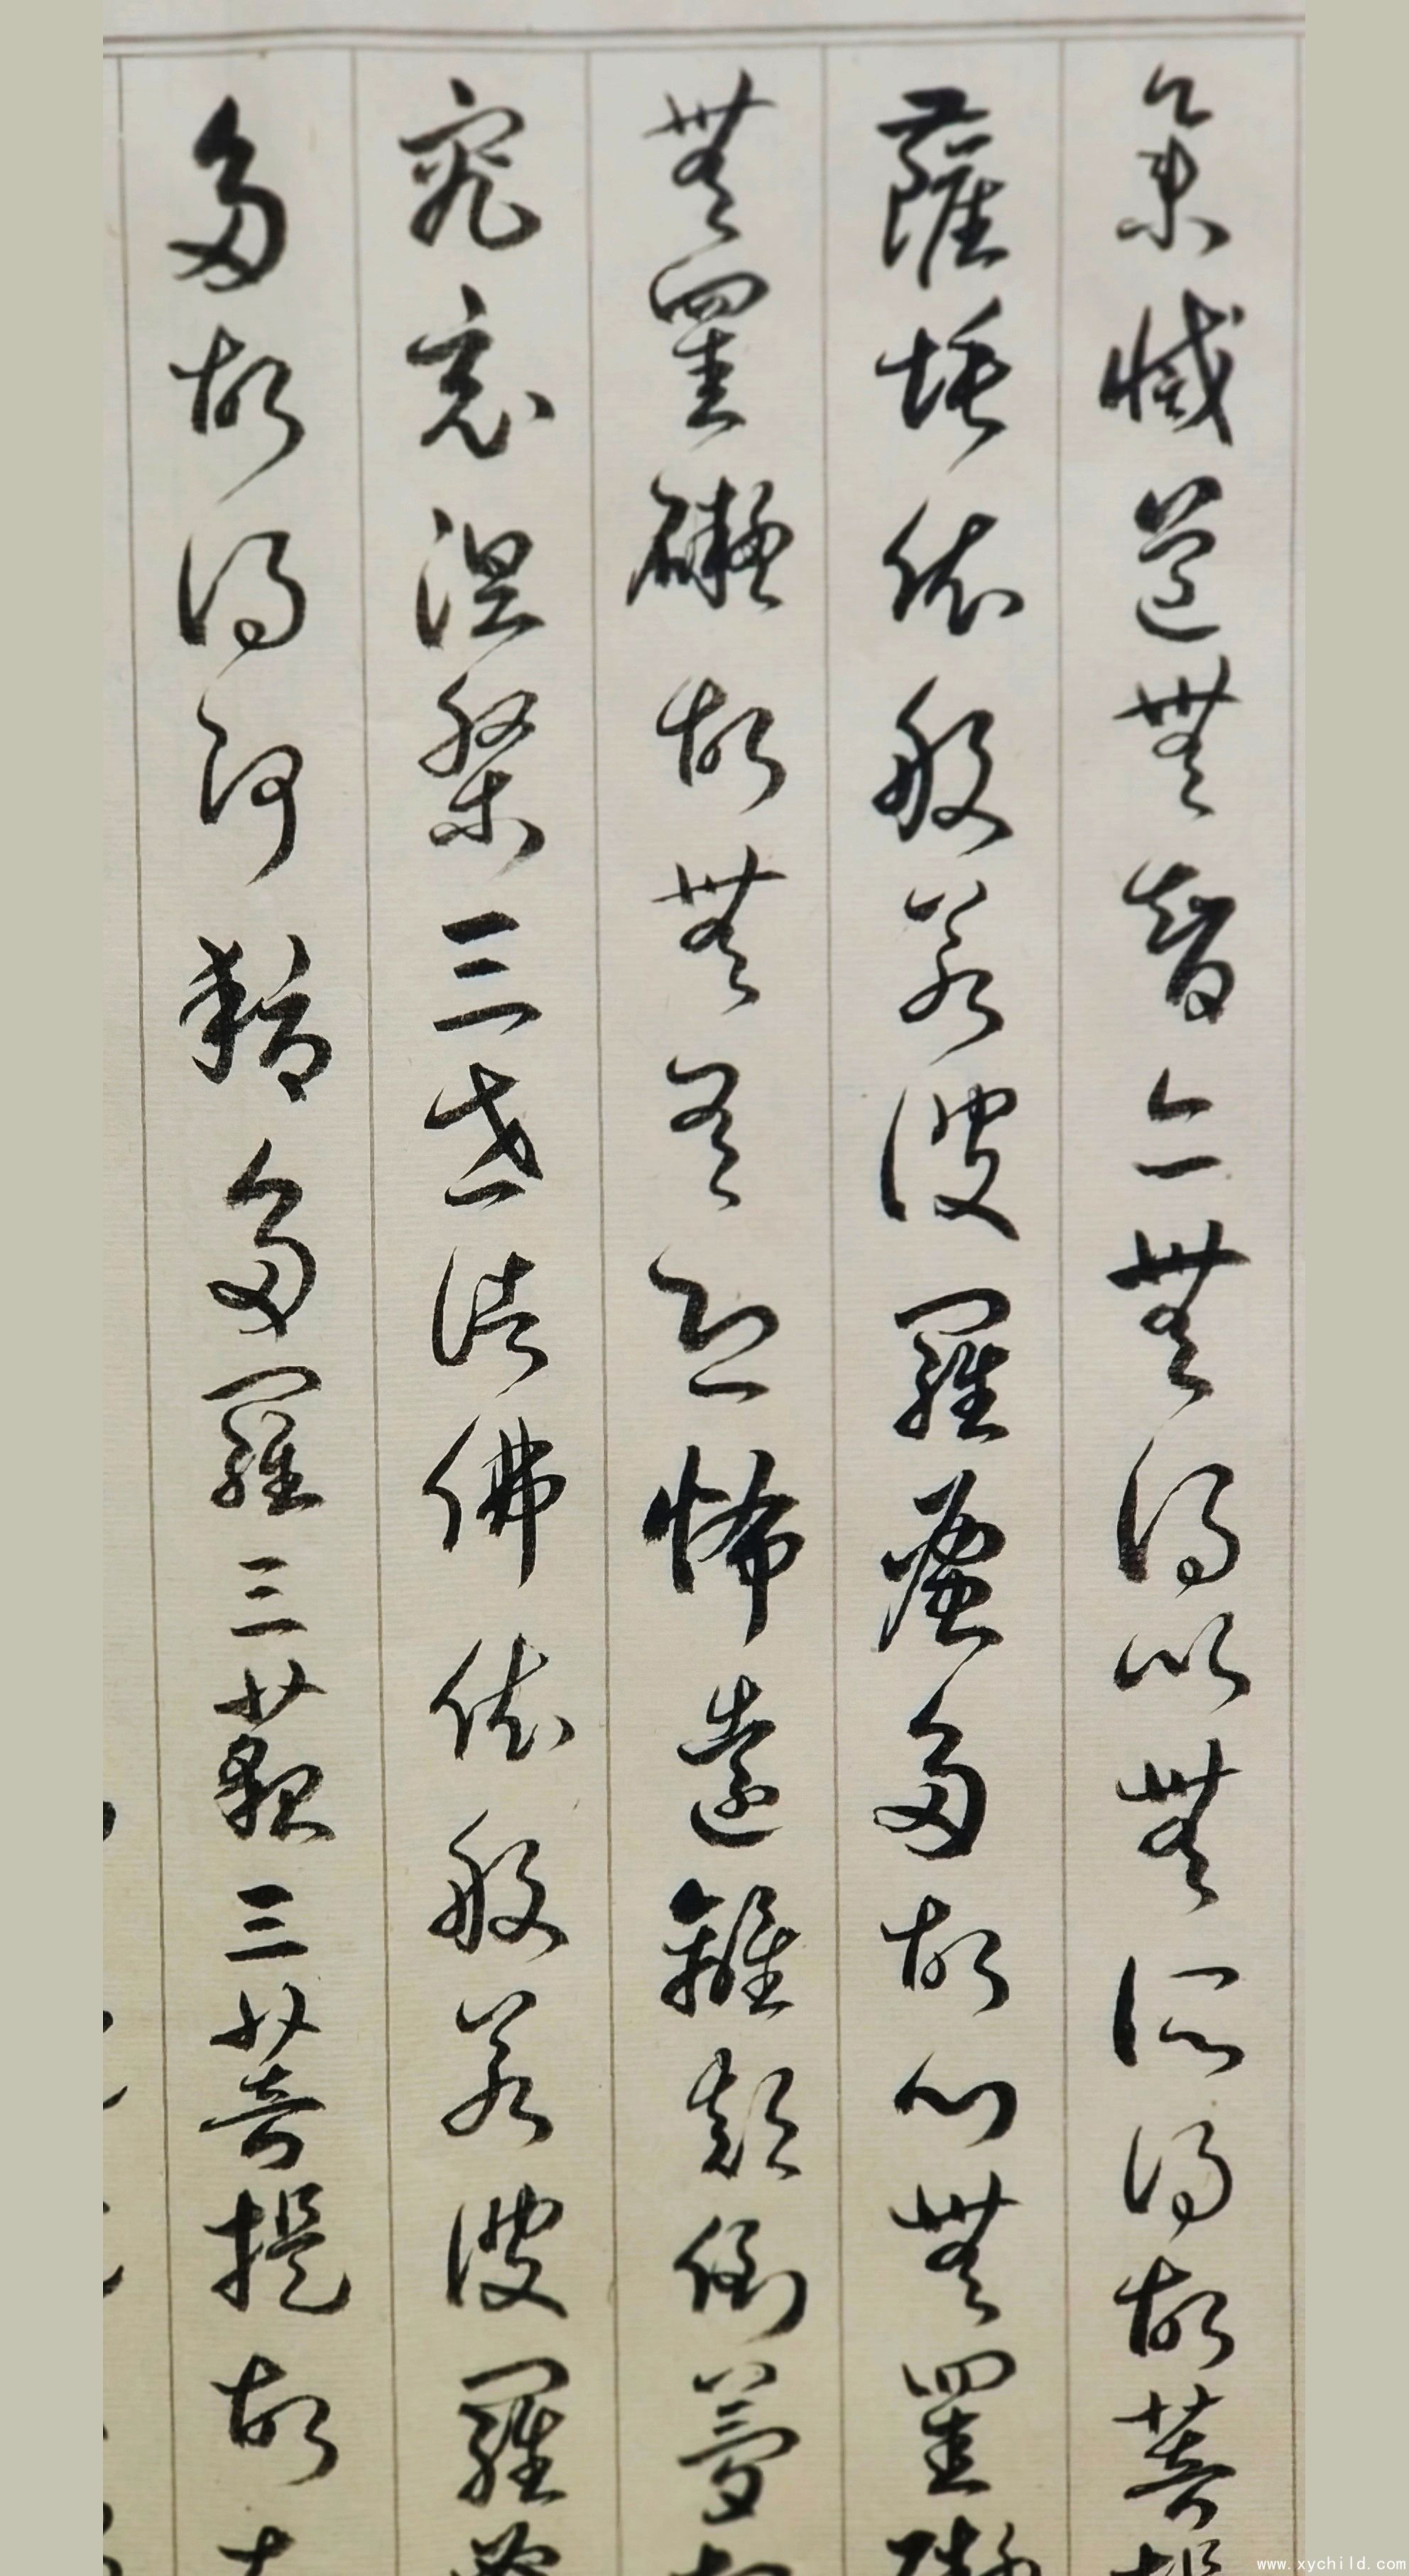 集滅道無智亦無得以無所得故菩
薩埵依般若波羅蜜多故心無罣礙
無罣礙故無有恐怖遠離顛倒夢
究竟涅槃三世諸佛依般若波羅
多故得阿耨多羅三藐三菩提故
www.xychild.com